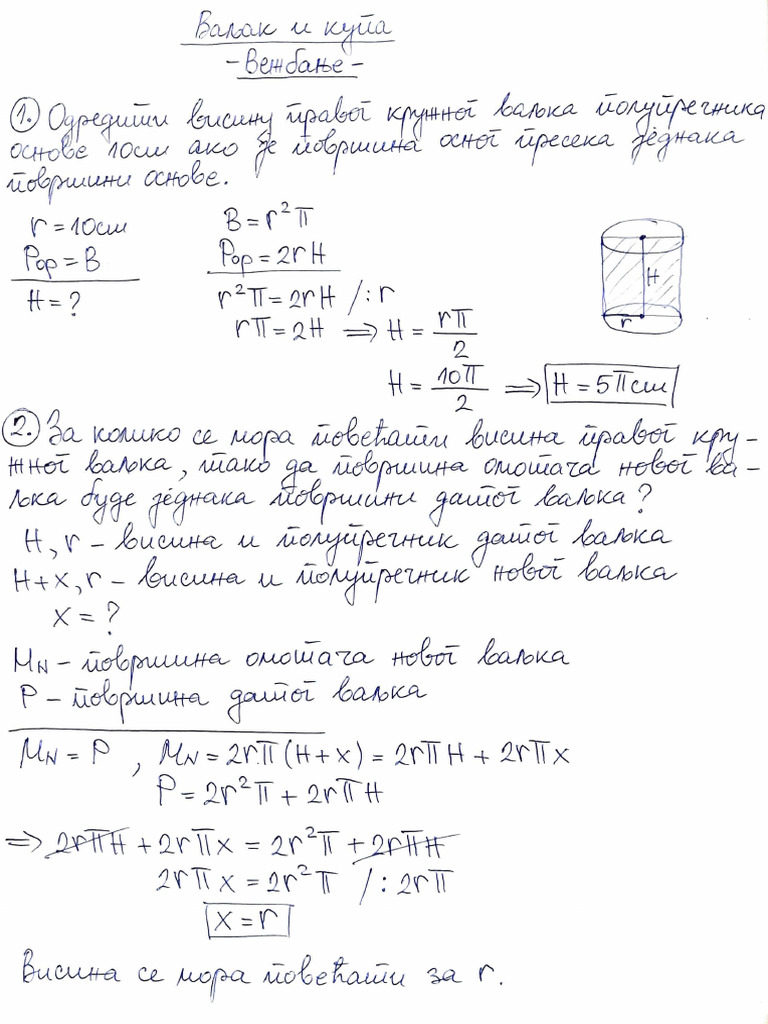 Ваљак и купа
- Вежбање -
1. Одредити висину правог кружног ваљка полупречника
основе 10cm ако је површина осног пресека једнака
површини основе.
r = 10cm B = r²π
Pop = B Pop = 2rH
H = ? r²π = 2rH /:r
rπ = 2H ⇒ H = rπ/2
H = 10π/2 ⇒ H = 5π cm
H
r
2. За колико се мора повећати висина правог кру-
жног ваљка, тако да површина омотача новог ва-
љка буде једнака површини датог ваљка?
H, r - висина и полупречник датог ваљка
H+x, r - висина и полупречник новог ваљка
x = ?
MN - површина омотача новог ваљка
P - површина датог ваљка
MN = P , MN = 2rπ(H+x) = 2rπH + 2rπx
P = 2r²π + 2rπH
⇒ 2rπH + 2rπx = 2r²π + 2rπH
2rπx = 2r²π /:2rπ
x = r
Висина се мора повећати за r.